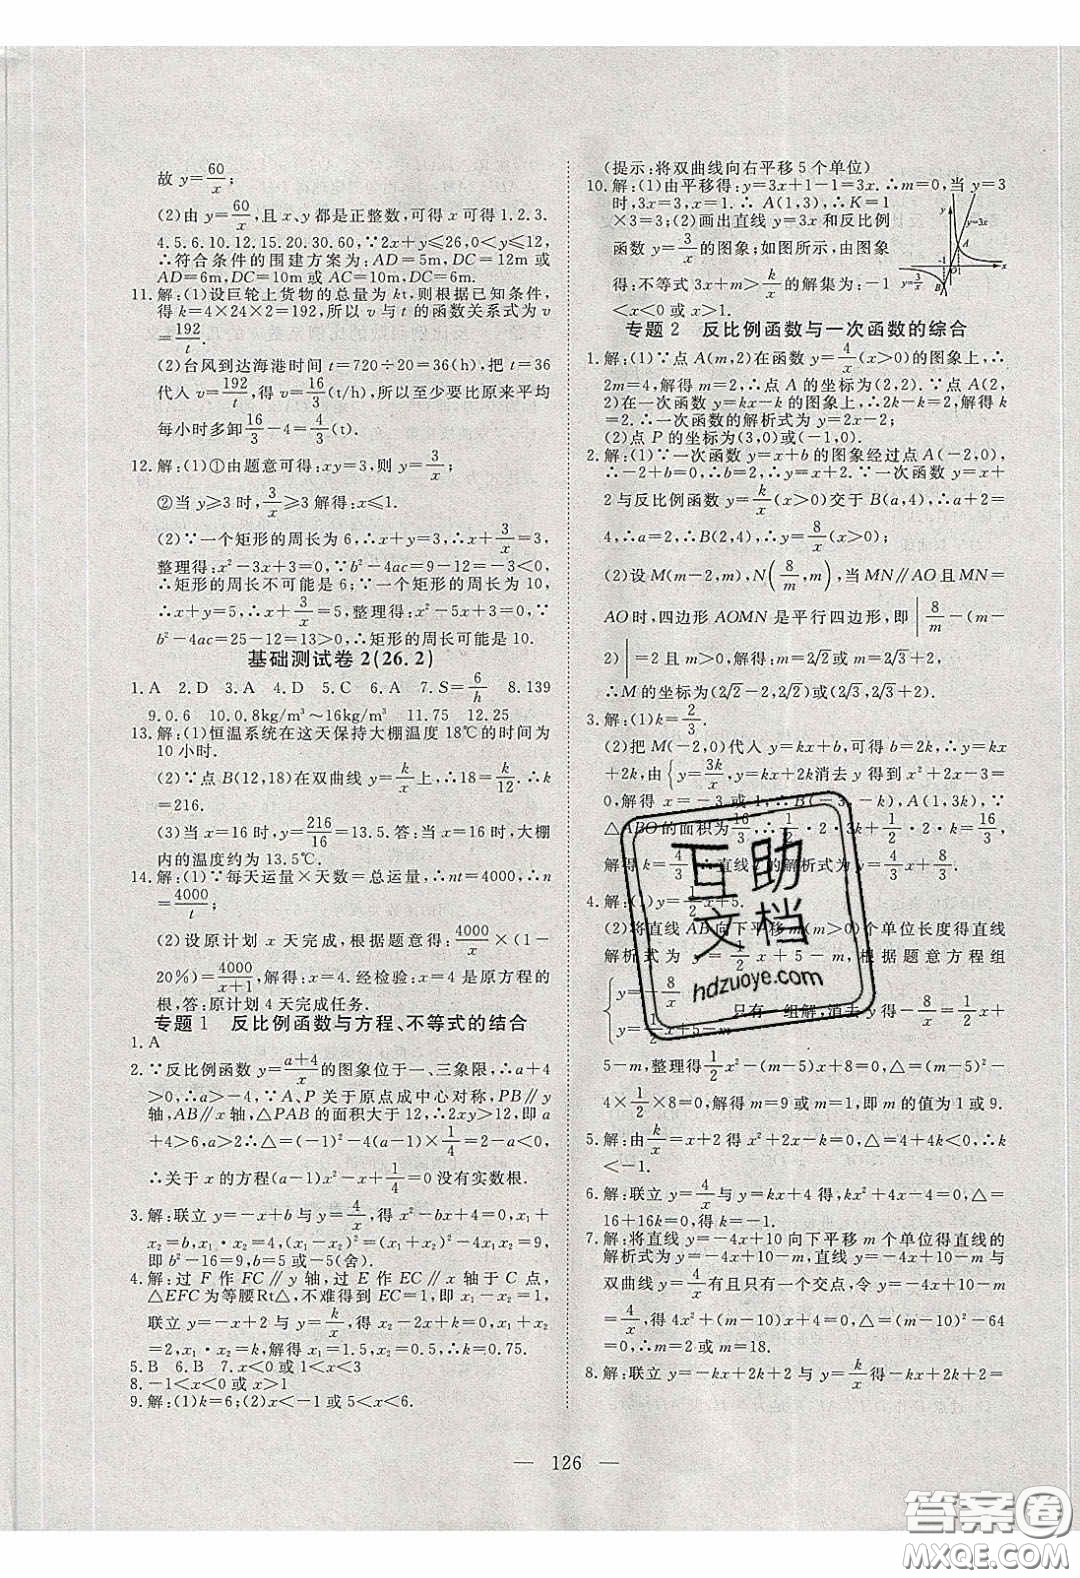 故 y=60/x;
(2)由 y=60/x,且 x、y 都是正整数,可得 x 可得 1.2.3.
4.5.6.10.12.15.20.30.60,∵2x+y≤26,0<y≤12,
∴符合条件的围建方案为:AD=5m,DC=12m 或
AD=6m,DC=10m 或 AC=10m,DC=6m.
11.解:(1)设巨轮上货物的总量为 kt,则根据已知条件,
得 k=4×24×2=192,所以 v 与 t 的函数关系式为 v
=192/t.
(2)台风到达海港时间 t=720÷20=36(h),把 t=36
代人 v=192/t,得 v=16/3(t/h),所以至少要比原来平均
每小时多卸16/3-4=4/3(t).
12.解:(1)①由题意可得:xy=3,则 y=3/x;
②当 y≥3 时,3/x≥3 解得:x≤1.
(2)∵一个矩形的周长为 6,∴x+y=3,∴x+3/x=3,
整理得:x²-3x+3=0,∵b²-4ac=9-12=-3<0,
∴矩形的周长不可能是 6;∵一个矩形的周长为 10,
∴x+y=5,∴x+3/x=5,整理得:x²-5x+3=0,∵
b²-4ac=25-12=13>0,∴矩形的周长可能是 10.
基础测试卷 2(26.2)
1.A 2.D 3.A 4.D 5.C 6.A 7.S=6/h 8.139
9.0.6 10.0.8kg/m³~16kg/m³ 11.75 12.25
13.解:(1)恒温系统在这天保持大棚温度 18℃的时间为
10 小时.
(2)∵点 B(12,18)在双曲线 y=k/x上,∴18=k/12,∴k
=216.
(3)当 x=16 时,y=216/16=13.5.答:当 x=16 时,大棚
内的温度约为 13.5℃.
14.解:(1)∵每天运量×天数=总运量,∴nt=4000,∴n
=4000/t;
(2)设原计划 x 天完成,根据题意得:4000/x×(1-
20%)=4000/(x+1),解得:x=4.经检验:x=4 是原方程的
根,答:原计划 4 天完成任务.
专题 1 反比例函数与方程、不等式的结合
1.A
2.∵反比例函数 y=(a+4)/x的图象位于一、三象限,∴a+4
>0,∴a>-4,∵A、P 关于原点成中心对称,PB∥y
轴,AB∥x 轴,△PAB 的面积大于 12,∴2xy>12,即 a
+4>6,a>2,∴△=(-1)²-4(a-1)×1/4=2-a<0,
∴关于 x 的方程(a-1)x²-x+1/4=0 没有实数根.
3.解:联立 y=-x+b 与 y=4/x,得 x²-bx+4=0,x₁+
x₂=b,x₁·x₂=4,(x₁-x₂)²=(x₁+x₂)²-4x₁x₂=9,
即 b²-16=9,b=5 或-5(舍).
4.解:过 F 作 FC∥y 轴,过 E 作 EC∥x 轴交于 C 点,
△EFC 为等腰Rt△,不难得到 EC=1,即 x₁-x₂=1,
联立 y=-x+2 与 y=k/x,得 x²-2x+k=0,x₁+x₂
=2,x₁·x₂=k,解得:x₁=1.5,x₂=0.5,∴k=0.75.
5.B 6.B 7.x<0 或 1<x<3
8.-1<x<0 或 x>1
9.解:(1)k=6;(2)x<-1 或 5<x<6.
(提示:将双曲线向右平移 5 个单位)
10.解:(1)由平移得:y=3x+1-1=3x.∴m=0,当 y=3
时,3x=3,x=1.∴A(1,3),∴K=1
×3=3;(2)画出直线 y=3x 和反比例
函数 y=3/x的图象;如图所示,由图象
得:不等式 3x+m>k/x的解集为:-1
<x<0 或 x>1.
y
y=3x
A
-1
O
1
x
y=3/x
B
专题 2 反比例函数与一次函数的综合
1.解:(1)∵点 A(m,2)在函数 y=4/x(x>0)的图象上,∴
2m=4,解得 m=2,∴点 A 的坐标为(2,2).∵点 A(2,
2)在一次函数 y=kx-k 的图象上,∴2k-k=2,解得 k
=2.∴一次函数的解析式为 y=2x-2;
(2)点 P 的坐标为(3,0)或(-1,0).
2.解:(1)∵一次函数 y=x+b 的图象经过点 A(-2,0),
∴-2+b=0,∴b=2,∴y=x+2.∵一次函数 y=x+
2 与反比例函数 y=k/x(x>0)交于 B(a,4),∴a+2=
4,∴a=2,∴B(2,4),∴y=8/x(x>0);
(2)设 M(m-2,m),N(8/m,m),当 MN∥AO且 MN=
AO时,四边形 AOMN 是平行四边形,即|8/m-(m-
2)|=2 且 m>0,解得:m=2√2或 m=2√3+2,
∴M 的坐标为(2√2-2,2√2)或(2√3,2√3+2).
3.解:(1)k=2/3.
(2)把 M(-2,0)代人 y=kx+b,可得 b=2k,∴y=kx
+2k,由{y=3k/x, y=kx+2k消去 y 得到 x²+2x-3=
0,解得 x=-3 或 1,∴B(-3,-k),A(1,3k),∵
△ABO的面积为16/3,∴1/2·2·3k+1/2·2·k=16/3,
解得 k=4/3,∴直线 l 的解析式为 y=4/3x+8/3.
4.解:(1)y=1/2x+5.
(2)将直线 AB 向下平移 m(m>0)个单位长度得直线
解析式为 y=1/2x+5-m,根据题意方程组
{y=-8/x, y=1/2x+5-m 只有一组解,消去 y得-8/x=1/2x+
5-m,整理得1/2x²-(m-5)x+8=0,△=(m-5)²-
4×1/2×8=0,解得 m=9 或 m=1,即 m的值为 1 或 9.
5.解:由k/x=x+2 得 x²+2x-k=0,△=4+4k<0,∴k
<-1.
6.解:联立 y=4/x与 y=kx+4 得,kx²+4x-4=0,△=
16+16k=0,得 k=-1.
7.解:将直线 y=-4x+10 向下平移 m 个单位得直线的
解析式为 y=-4x+10-m,直线 y=-4x+10-m 与
双曲线 y=4/x有且只有一个交点,令 y=-4x+10-m
=4/x,得 4x²+(m-10)x+4=0,∴△=(m-10)²-64
=0,解得:m=2 或 m=18.
8.解:联立 y=-kx+2k+2 与 y=k/x得-kx+2k+2=
— 126 —
互助
文档
hdzuoye.com
答案圈
MXQE.COM